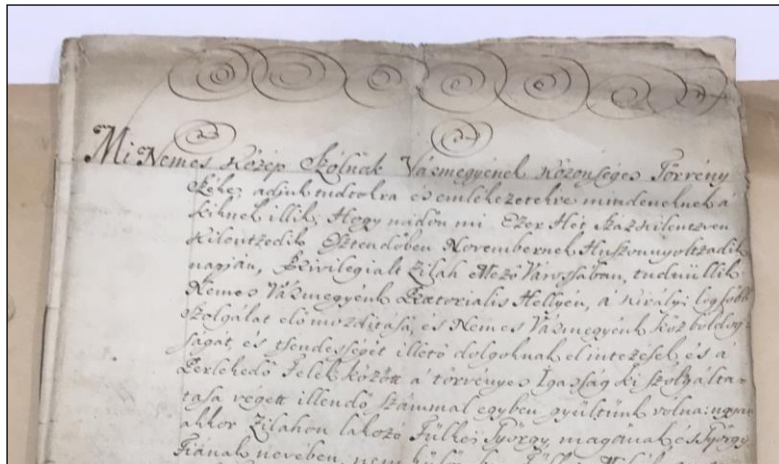 Mi Nemes Közép Szólnak Vármegyének Közönséges Törvény
Széke; adjuk tudtokra és emlékezetekre mindeneknek a'
kiknek illik; Hogy midön mi Ezer Hét Száz Kilentzven
Kilentzedik Esztendöben Novembernek Huszonnyoltzadik
napján, Privilegialt Zilah Mezö Várossában, tudniillik
Nemes Vármegyénk Prætorialis Hellyén, a' Királyi legföbb
szolgálat elö mozditása, és Nemes Vármegyénk Köz boldog
ságát, és tsendességét illetö dolgoknak elintézések, és a'
Perlekedö Felek között a' törvényes Igasság ki szolgálta-
tása végett illendö számmal egyben gyültünk volna:
akkor Zilahon lakozó Fülkei György, magának és György
Fiának nevében,